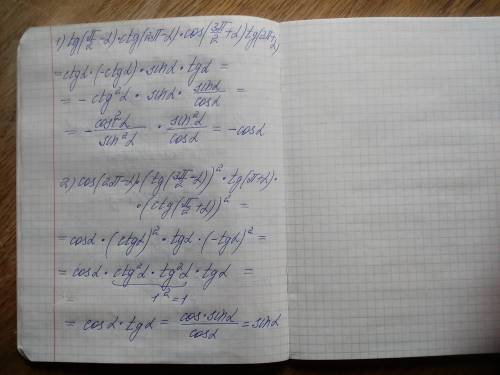 1) tg(π/2-α)·ctg(2π-α)·cos(3π/2+α)tg(2π+α)
= ctgα·(-ctgα)·sinα·tgα =
= - ctg²α · sinα · sinα/cosα =
= - cos²α/sin²α · sin²α/cosα = -cosα
2) cos(2π-α)·(tg(3π/2-α))²·tg(π+α)·
·(ctg(π/2+α))² =
= cosα·(ctgα)²·tgα·(-tgα)² =
= cosα·ctg²α·tg²α·tgα =
= 1²=1
= cosα·tgα = cos·sinα/cosα = sinα